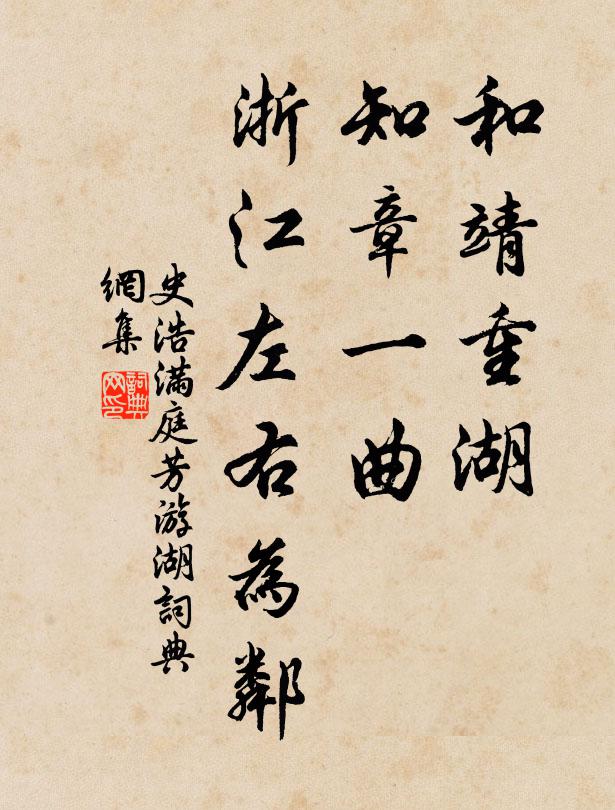 和靖重湖
知章一曲
浙江左右為鄰
史浩滿庭芳游湖詞典
網集
詞典
网印